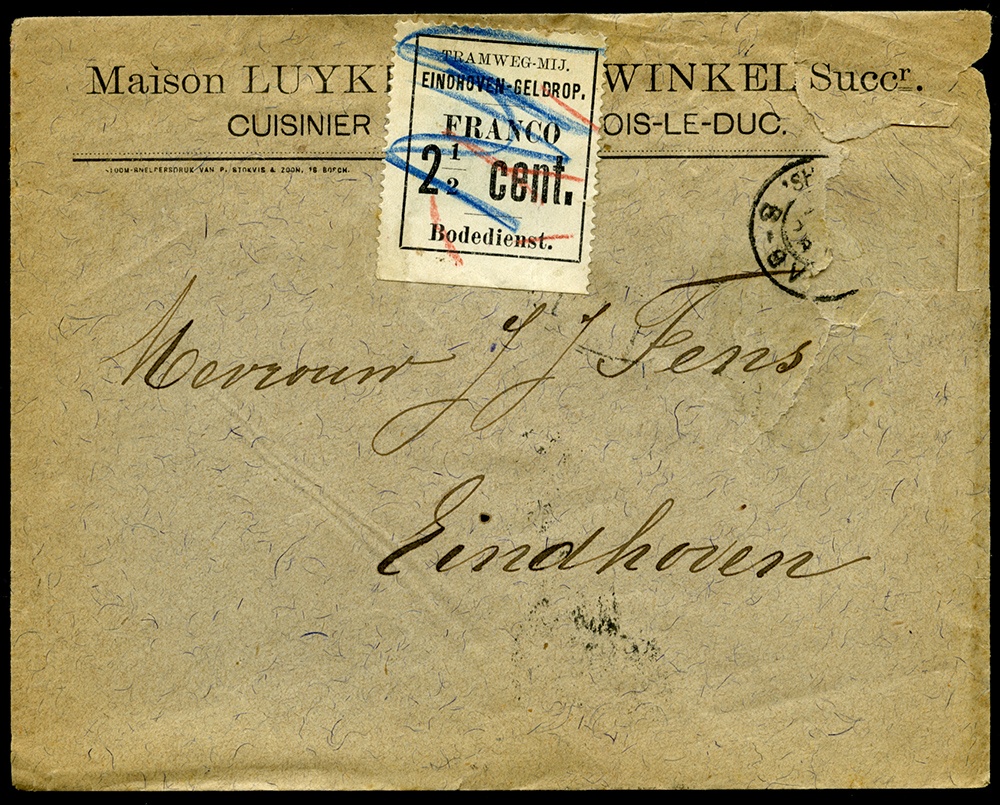 Maison LUYK WINKEL Succr.
CUISINIER OIS-LE-DUC.
STOOM-SNELPERSDRUK VAN P. STOKVIS & ZOON, 'S BOSCH.
TRAMWEG-MIJ.
EINDHOVEN-GELDROP.
FRANCO
2 1/2 cent.
Bodedienst.
Mevrouw J J Fens
Eindhoven